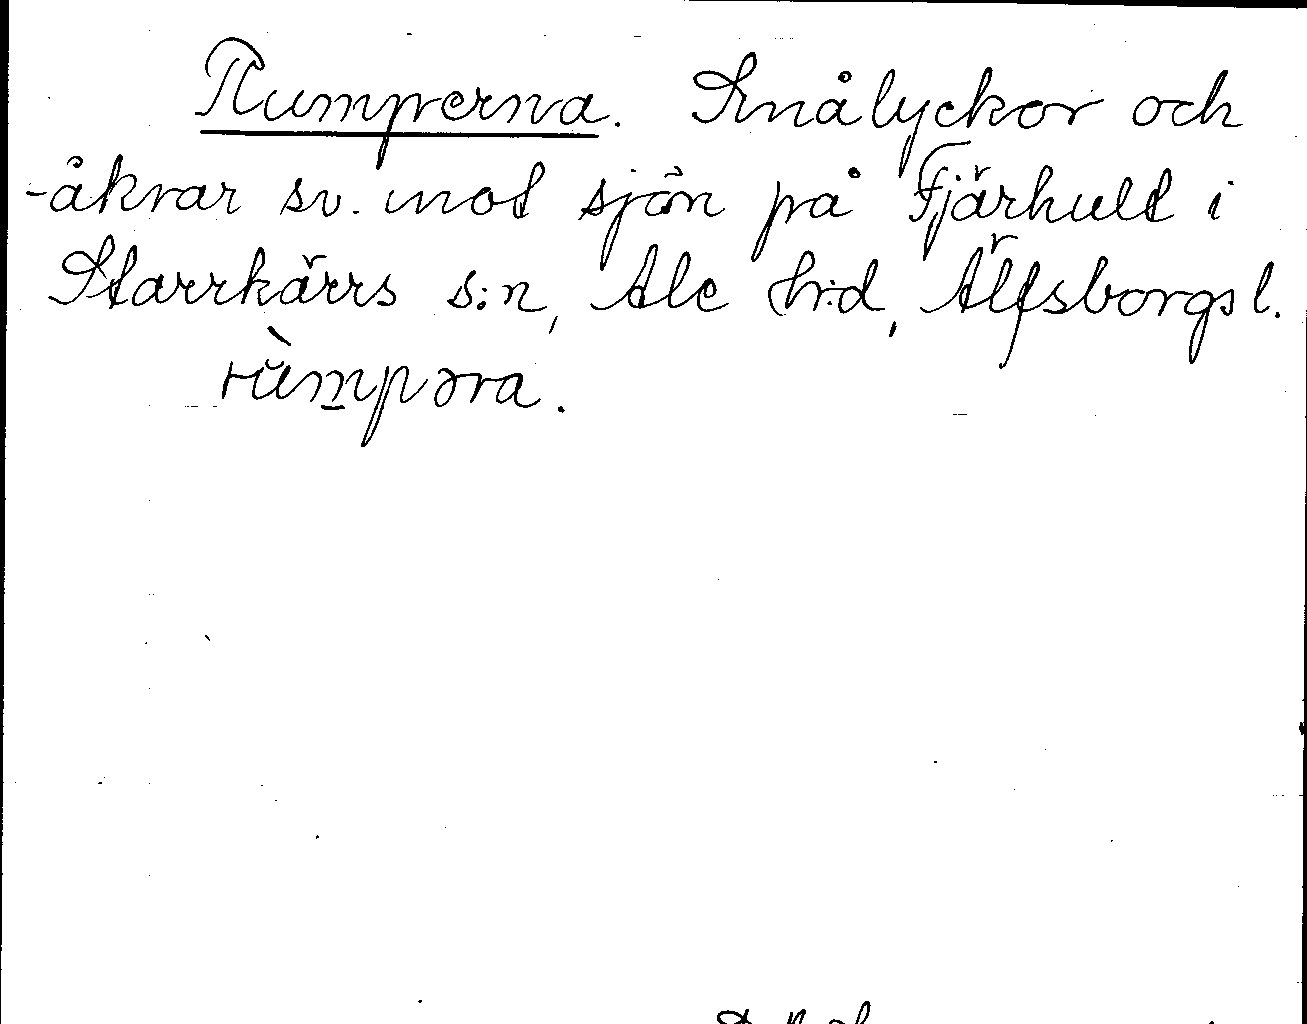 Rumperna. Smålyckor och
-åkrar sv. mot sjön på Fjärhult i
Starrkärrs s:n, Ale h:d, Älfsborgs l.
rùmpəra.